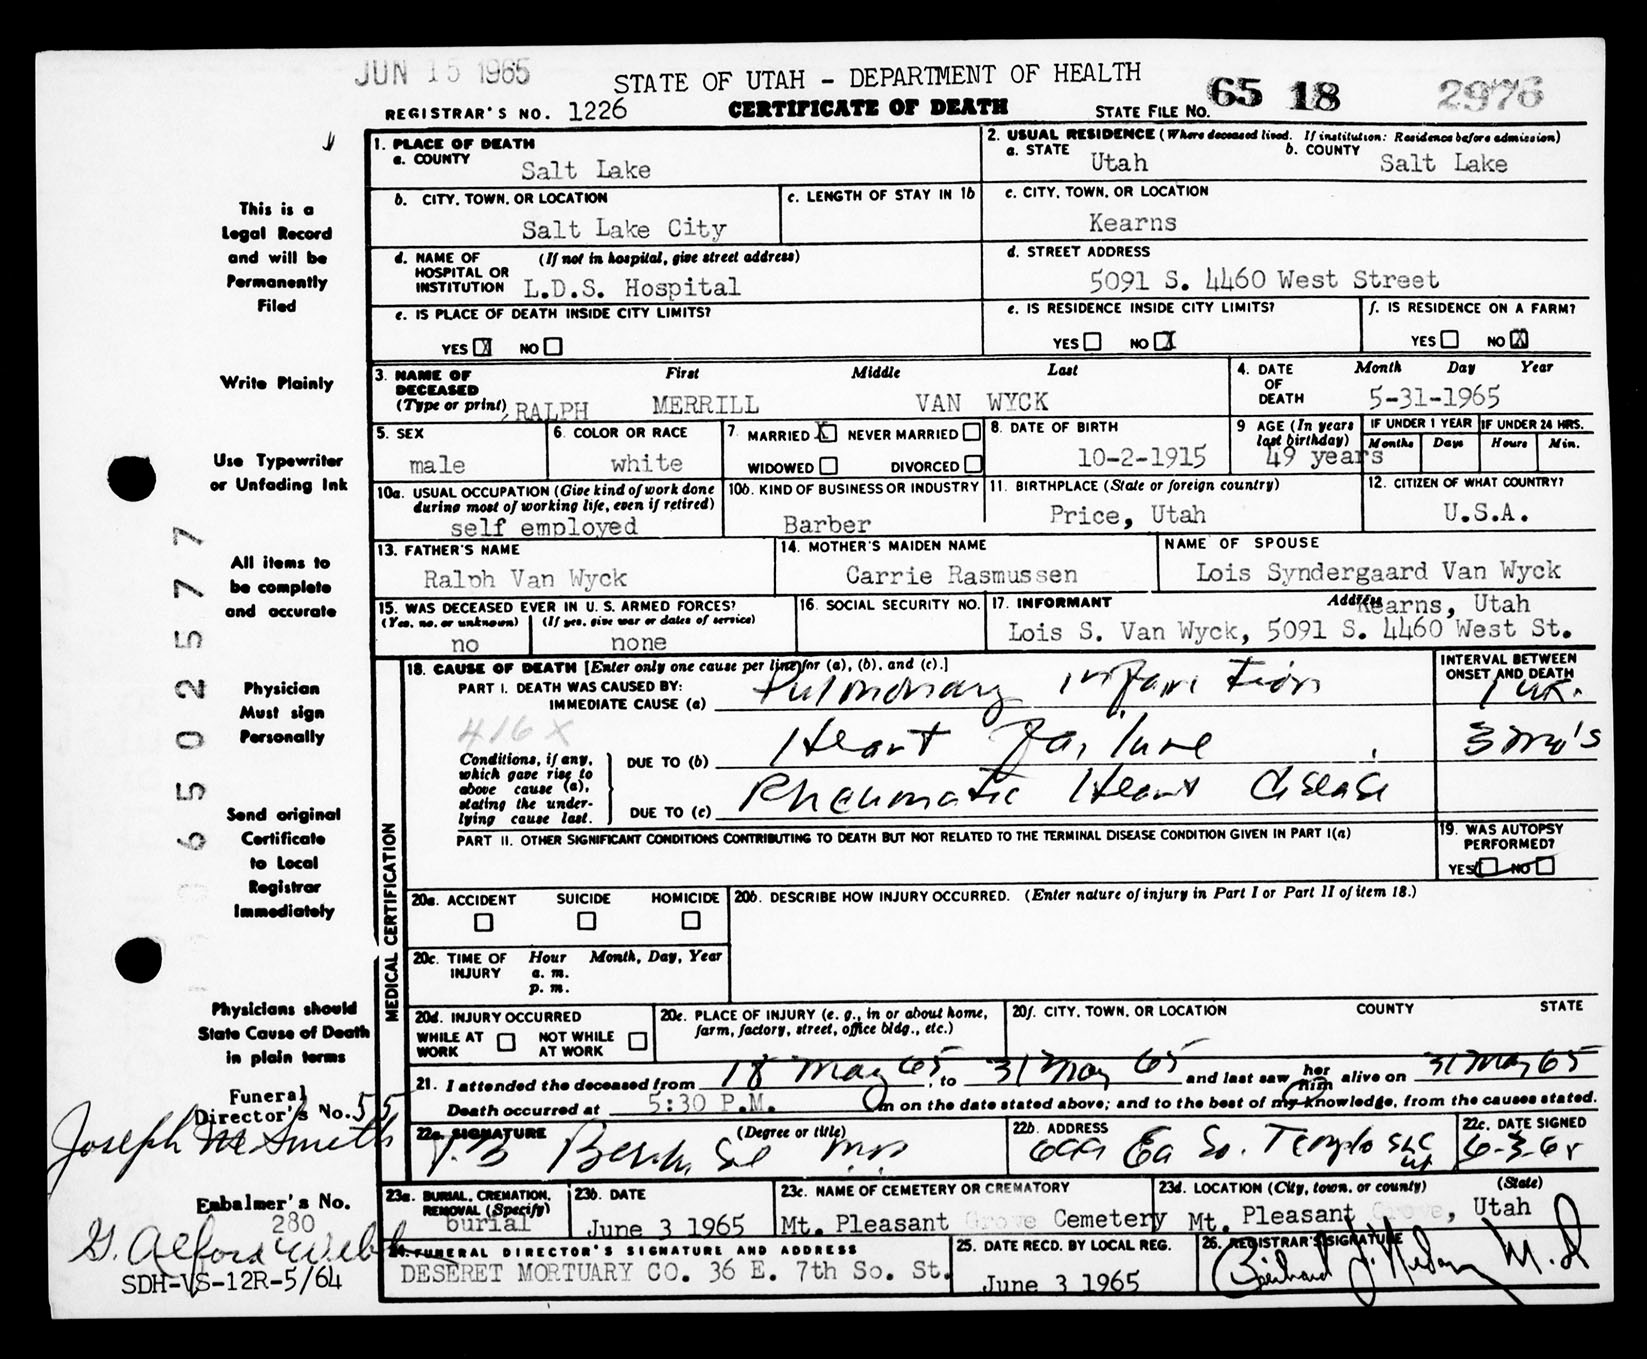 JUN 15 1965
STATE OF UTAH - DEPARTMENT OF HEALTH
REGISTRAR'S NO. 1226 CERTIFICATE OF DEATH STATE FILE NO. 65 18 2976
This is a
Legal Record
and will be
Permanently
Filed
Write Plainly
Use Typewriter
or Unfading Ink
All items to
be complete
and accurate
Physician
Must sign
Personally
Send original
Certificate
to Local
Registrar
Immediately
Physicians should
State Cause of Death
in plain terms
Funeral
Director's No. 55
Joseph M Smith
Embalmer's No.
280
G. Alford Webb
SDH-VS-12R-5/64
6 5 0 2 5 7 7
1. PLACE OF DEATH
a. COUNTY
Salt Lake
2. USUAL RESIDENCE (Where deceased lived. If institution: Residence before admission)
a. STATE Utah b. COUNTY Salt Lake
b. CITY, TOWN, OR LOCATION
Salt Lake City
c. LENGTH OF STAY IN 1b
c. CITY, TOWN, OR LOCATION
Kearns
d. NAME OF HOSPITAL OR INSTITUTION (If not in hospital, give street address)
L.D.S. Hospital
d. STREET ADDRESS
5091 S. 4460 West Street
e. IS PLACE OF DEATH INSIDE CITY LIMITS?
YES X NO
e. IS RESIDENCE INSIDE CITY LIMITS?
YES NO X
f. IS RESIDENCE ON A FARM?
YES NO X
3. NAME OF DECEASED (Type or print) First Middle Last
RALPH MERRILL VAN WYCK
4. DATE OF DEATH Month Day Year
5-31-1965
5. SEX
male
6. COLOR OR RACE
white
7. MARRIED X NEVER MARRIED
WIDOWED DIVORCED
8. DATE OF BIRTH
10-2-1915
9 AGE (In years last birthday)
49 years
IF UNDER 1 YEAR IF UNDER 24 HRS.
Months Days Hours Min.
10a. USUAL OCCUPATION (Give kind of work done during most of working life, even if retired)
self employed
10b. KIND OF BUSINESS OR INDUSTRY
Barber
11. BIRTHPLACE (State or foreign country)
Price, Utah
12. CITIZEN OF WHAT COUNTRY?
U.S.A.
13. FATHER'S NAME
Ralph Van Wyck
14. MOTHER'S MAIDEN NAME
Carrie Rasmussen
NAME OF SPOUSE
Lois Syndergaard Van Wyck
15. WAS DECEASED EVER IN U. S. ARMED FORCES?
(Yes, no, or unknown) (If yes, give war or dates of service)
no none
16. SOCIAL SECURITY NO.
17. INFORMANT Address Kearns, Utah
Lois S. Van Wyck, 5091 S. 4460 West St.
MEDICAL CERTIFICATION
18. CAUSE OF DEATH [Enter only one cause per line for (a), (b), and (c).]
PART I. DEATH WAS CAUSED BY:
IMMEDIATE CAUSE (a) Pulmonary infarction
INTERVAL BETWEEN ONSET AND DEATH
1 wk.
416X
Conditions, if any, which gave rise to above cause (a), stating the underlying cause last.
DUE TO (b) Heart Failure 3 mo's
DUE TO (c) Rheumatic Heart disease
PART II. OTHER SIGNIFICANT CONDITIONS CONTRIBUTING TO DEATH BUT NOT RELATED TO THE TERMINAL DISEASE CONDITION GIVEN IN PART I(a)
19. WAS AUTOPSY PERFORMED?
YES NO
20a. ACCIDENT SUICIDE HOMICIDE
20b. DESCRIBE HOW INJURY OCCURRED. (Enter nature of injury in Part I or Part II of item 18.)
20c. TIME OF INJURY Hour Month, Day, Year
a. m.
p. m.
20d. INJURY OCCURRED
WHILE AT WORK NOT WHILE AT WORK
20e. PLACE OF INJURY (e. g., in or about home, farm, factory, street, office bldg., etc.)
20f. CITY, TOWN, OR LOCATION COUNTY STATE
21. I attended the deceased from 18 May 65, to 31 May 65 and last saw her him alive on 31 May 65
Death occurred at 5:30 P.M. m on the date stated above; and to the best of my knowledge, from the causes stated.
22a. SIGNATURE (Degree or title)
MD
22b. ADDRESS
Ea So. Temple SLC
22c. DATE SIGNED
6-3-65
23a. BURIAL, CREMATION, REMOVAL (Specify)
burial
23b. DATE
June 3 1965
23c. NAME OF CEMETERY OR CREMATORY
Mt. Pleasant Cemetery
23d. LOCATION (City, town, or county) (State)
Mt. Pleasant, Utah
24. FUNERAL DIRECTOR'S SIGNATURE AND ADDRESS
DESERET MORTUARY CO. 36 E. 7th So. St.
25. DATE RECD. BY LOCAL REG.
June 3 1965
26. REGISTRAR'S SIGNATURE
M.D